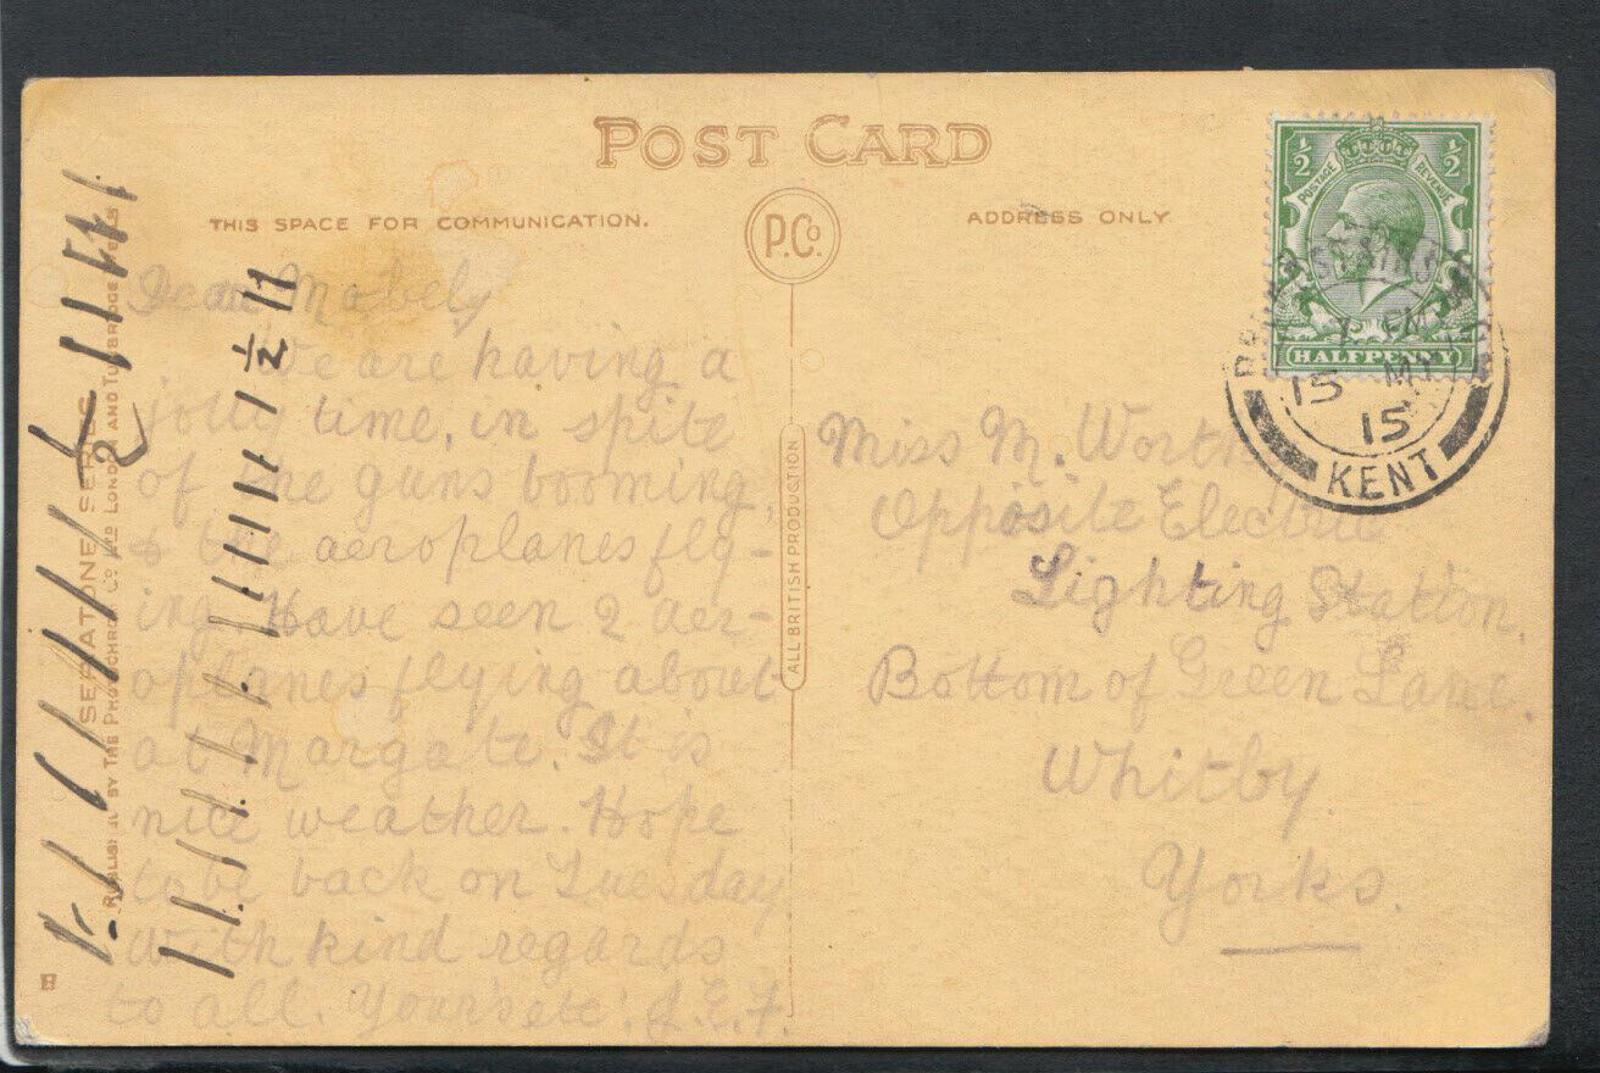 POST CARD
THIS SPACE FOR COMMUNICATION.
P.Co.
ADDRESS ONLY
Dear Mabel,
We are having a
jolly time, in spite
of the guns booming,
& the aeroplanes fly-
ing. Have seen 2 aer-
oplanes flying about
at Margate. It is
nice weather. Hope
to be back on Tuesday
With kind regards
to all. Your's etc. J.E.F.
ALL BRITISH PRODUCTION
Miss M. Worth
Opposite Electric
Lighting Station.
Bottom of Green Lane.
Whitby.
Yorks.
½ ½
POSTAGE REVENUE
HALFPENNY
BROADSTAIRS
PM
15 MY
15
KENT
SEPIATONE SERIES
PUBLISHED BY THE PHOTOCHROM CO LTD LONDON AND TUNBRIDGE WELLS
½
½ 11